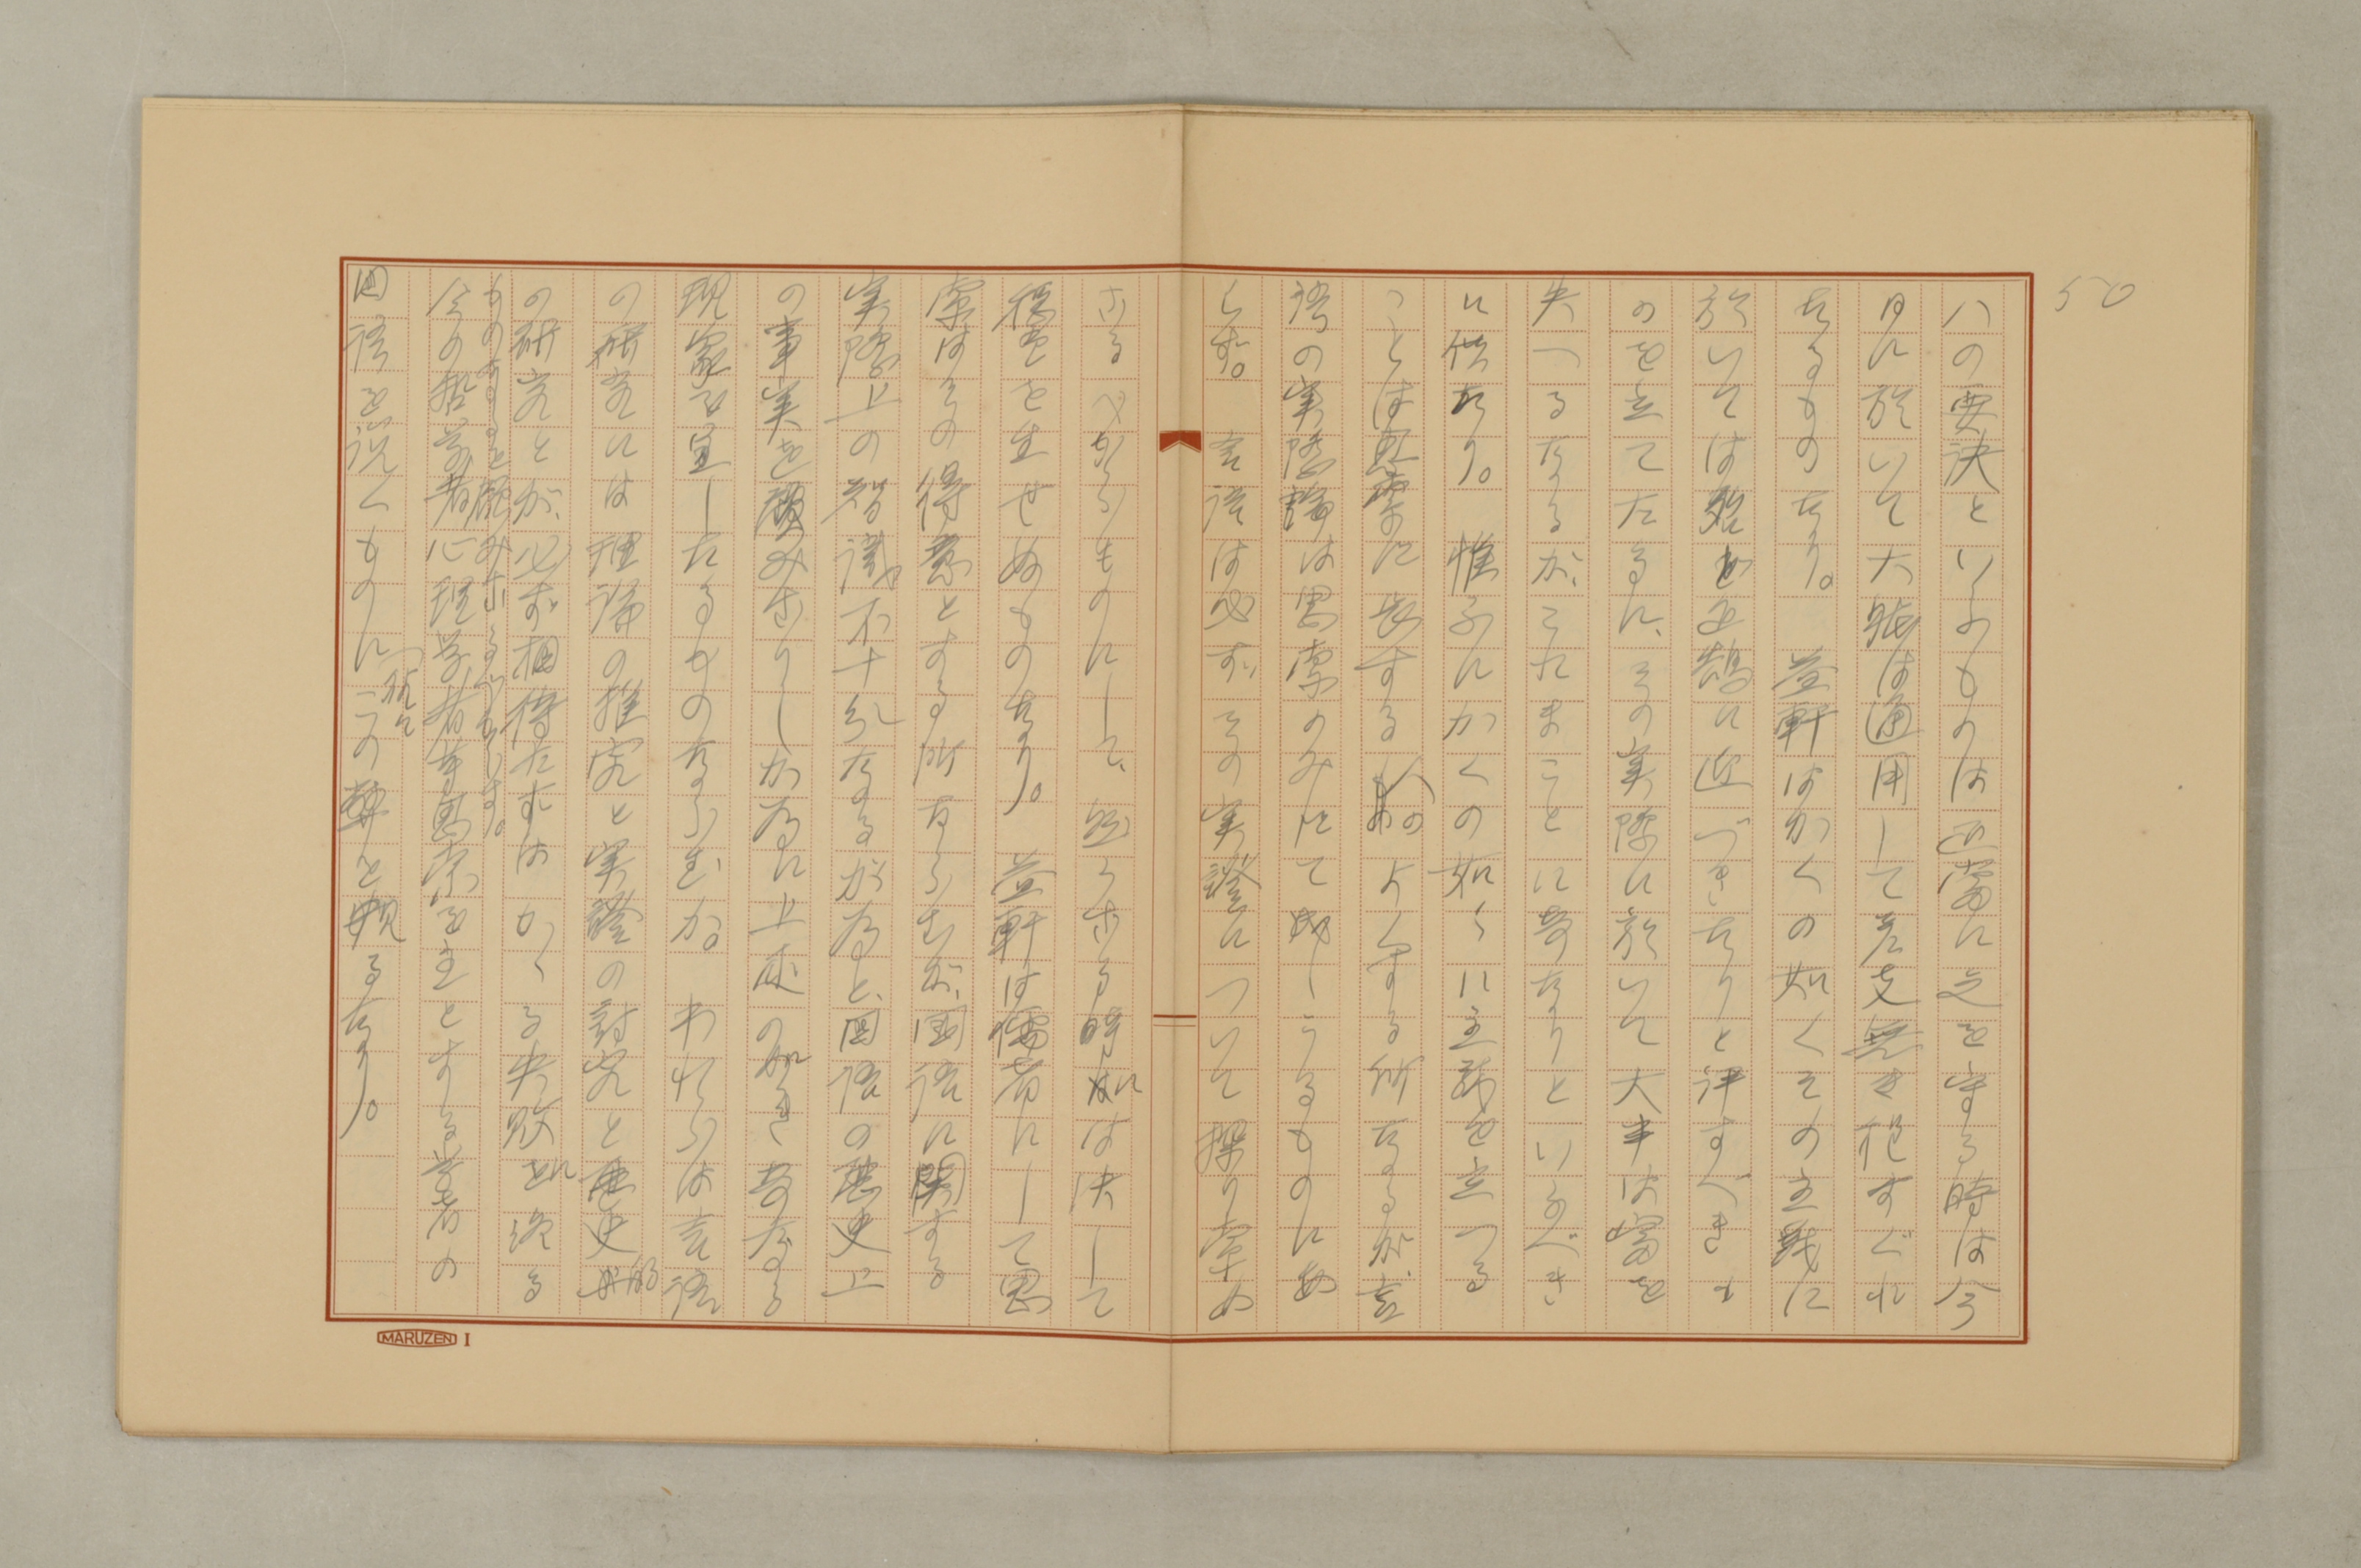 50
八の要決といふものは正当に之を守る時は今
日に於いて大抵は通用して差支無き程すぐれ
たるものなり。益軒はかくの如くその主義に
於いては殆ど正鵠に近づきたりと評すべきも
のを立てたるに、その実際に於いて大半は当を
失へるなるが、これまことに奇なりといふべき
に似たり。惟ふにかくの如くに主義を立つる
ことは思索に長ずる人のよくする所なるが、言
語の実際論は思索のみにて成しうるものにあ
らず。言語は必ずその実證について探り索め
ざるべからざるものにして、然らざる時には決して
穏当を生せぬものなり。益軒は儒者にして思
索はその得意とする所ならむが、国語に関する
実際上の智識不十分なるが為と、国語の歴史上
の事実を顧みざりしが為に上述の如き奇なる
現象を呈したるものならむか。われらは言語
の研究には理論の推究と実證の討究と歴史的
の研究とが、必ず相待たずはかゝる失敗に終る
ものあることを顧みざるべからず。
今の哲学者心理学者等思索を主とする学者の
国語を説くものに往々この弊を見るなり。
MARUZEN I